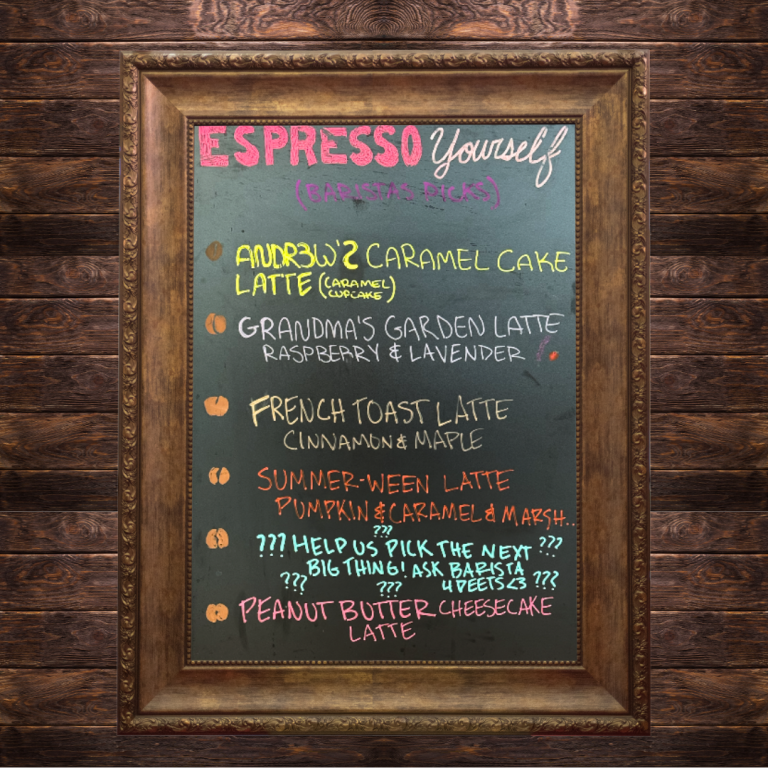 ESPRESSO Yourself
(BARISTAS PICKS)
ANDR3W'S CARAMEL CAKE
LATTE (CARAMEL CUPCAKE)
GRANDMA'S GARDEN LATTE
RASPBERRY & LAVENDER
FRENCH TOAST LATTE
CINNAMON & MAPLE
SUMMER-WEEN LATTE
PUMPKIN & CARAMEL & MARSH..
???
??? HELP US PICK THE NEXT ???
BIG THING! ASK BARISTA
??? ??? 4 DEETS<3 ???
PEANUT BUTTER CHEESECAKE
LATTE